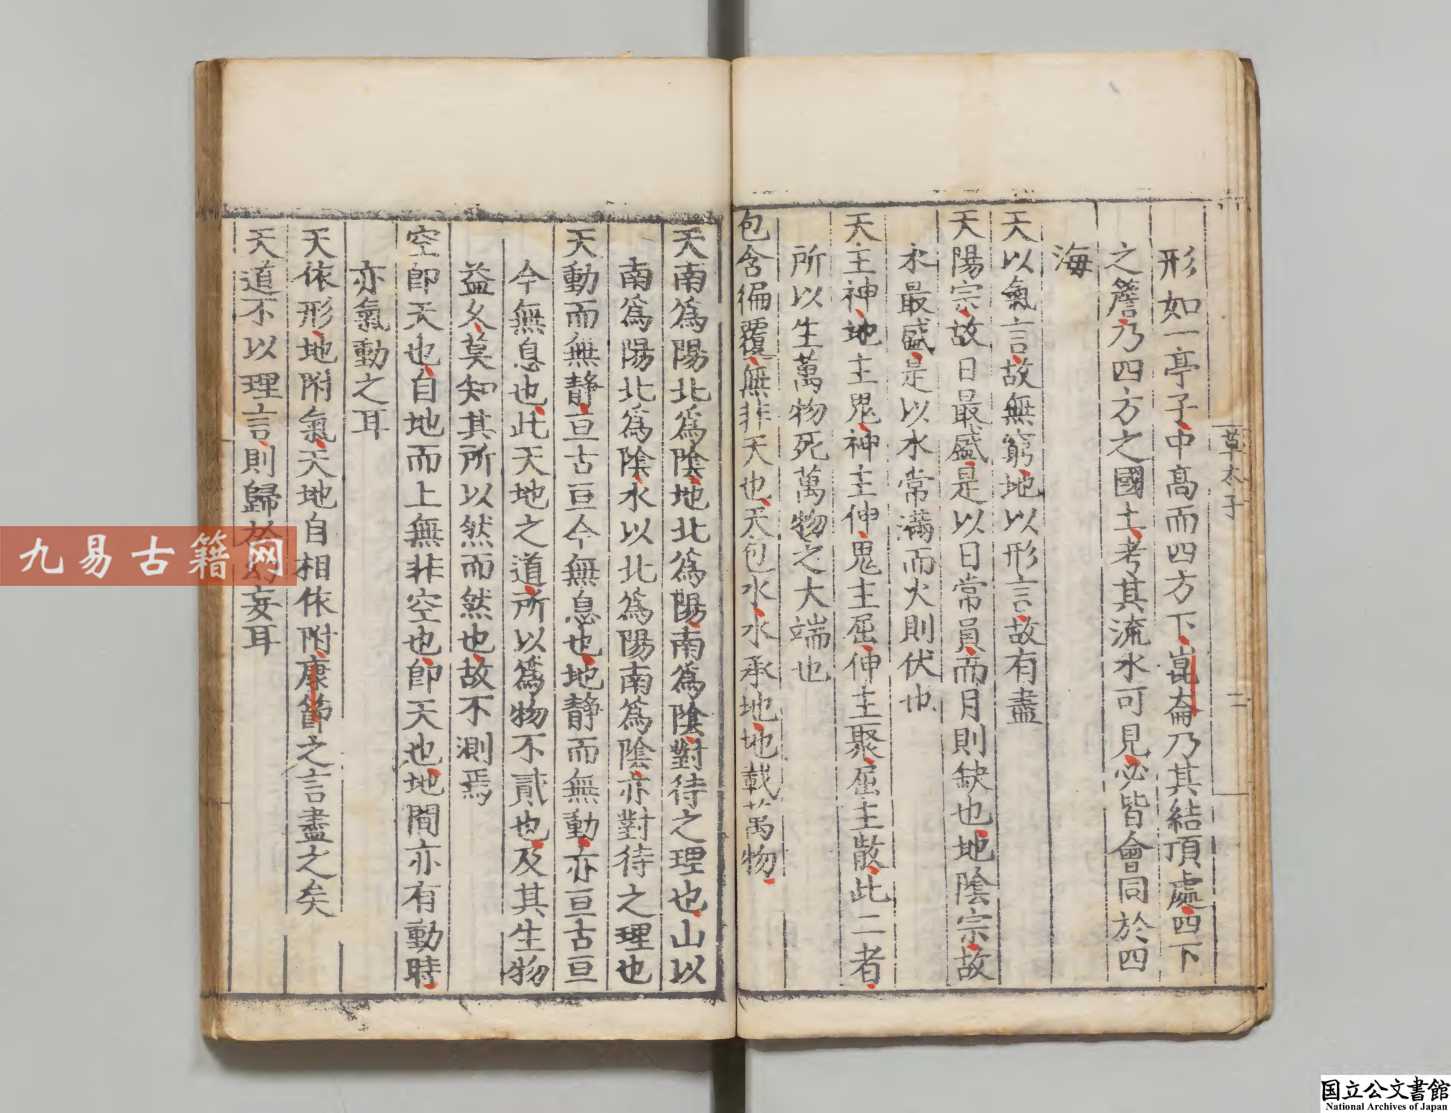 形如一亭子中高而四方下崑崙乃其結頂處四下
之簷乃四方之國土考其流水可見必皆會同於四
海
天以氣言故無窮地以形言故有盡
天陽宗故日最盛是以日常員而月則缺也地陰宗故
水最盛是以水常滿而火則伏也
天主神地主鬼神主伸鬼主屈伸主聚屈主散此二者
所以生萬物死萬物之大端也
包含徧覆無非天也天包水水承地地載萬物
草木子
二
天南爲陽北爲陰地北爲陽南爲陰對待之理也山以
南爲陽北爲陰水以北爲陽南爲陰亦對待之理也
天動而無靜亘古亘今無息也地靜而無動亦亘古亘
今無息也此天地之道所以爲物不貳也及其生物
益久莫知其所以然而然也故不測焉
空卽天也自地而上無非空也卽天也地間亦有動時
亦氣動之耳
天依形地附氣天地自相依附康節之言盡之矣
天道不以理言則歸於妄耳
九易古籍网
国立公文書館
National Archives of Japan